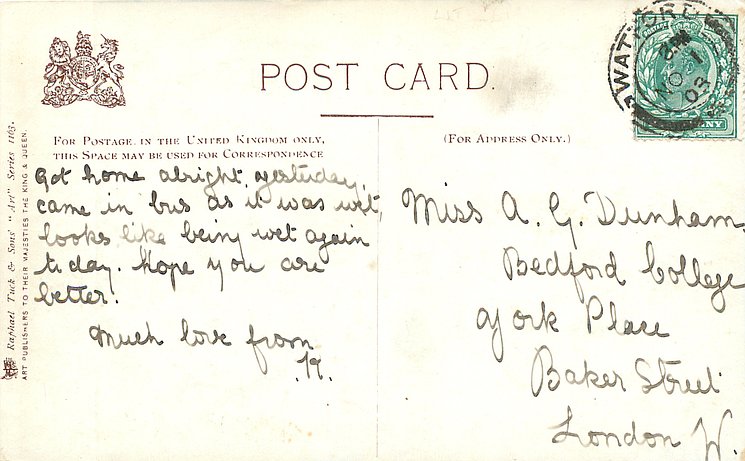 POST CARD.
FOR POSTAGE IN THE UNITED KINGDOM ONLY,
THIS SPACE MAY BE USED FOR CORRESPONDENCE
(FOR ADDRESS ONLY.)
Got home alright, yesterday,
came in bus as it was wet,
looks like being wet again
today. Hope you are
better.
Much love from
Miss A. G. Dunham
Bedford College
York Place
Baker Street
London W.
Raphael Tuck & Sons' "Art" Series 1163.
ART PUBLISHERS TO THEIR MAJESTIES THE KING & QUEEN.
WATFORD
NO 1
03